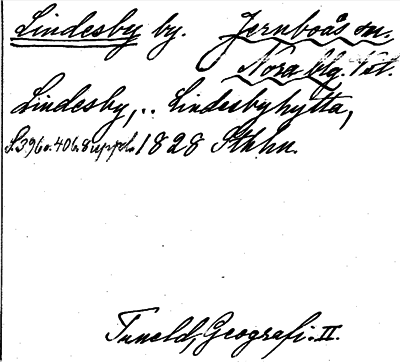 Lindesby by. Jernboås sn.
Nora blg. Vstl.
Lindesby, .. Lindesbyhytta,
S. 396 o. 406. 8 uppl. 1828 Sthlm.
Tuneld, Geografi. II.